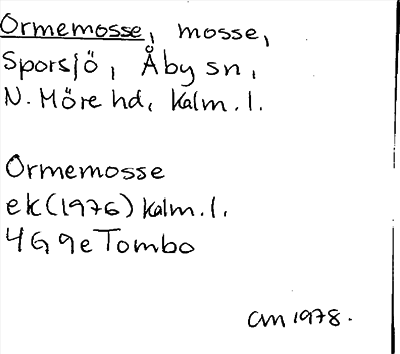 Ormemosse, mosse,
Sporsjö, Åby sn,
N. Möre hd, Kalm. l.
Ormemosse
ek(1976) Kalm. l.
4G 9e Tombo
am 1978.